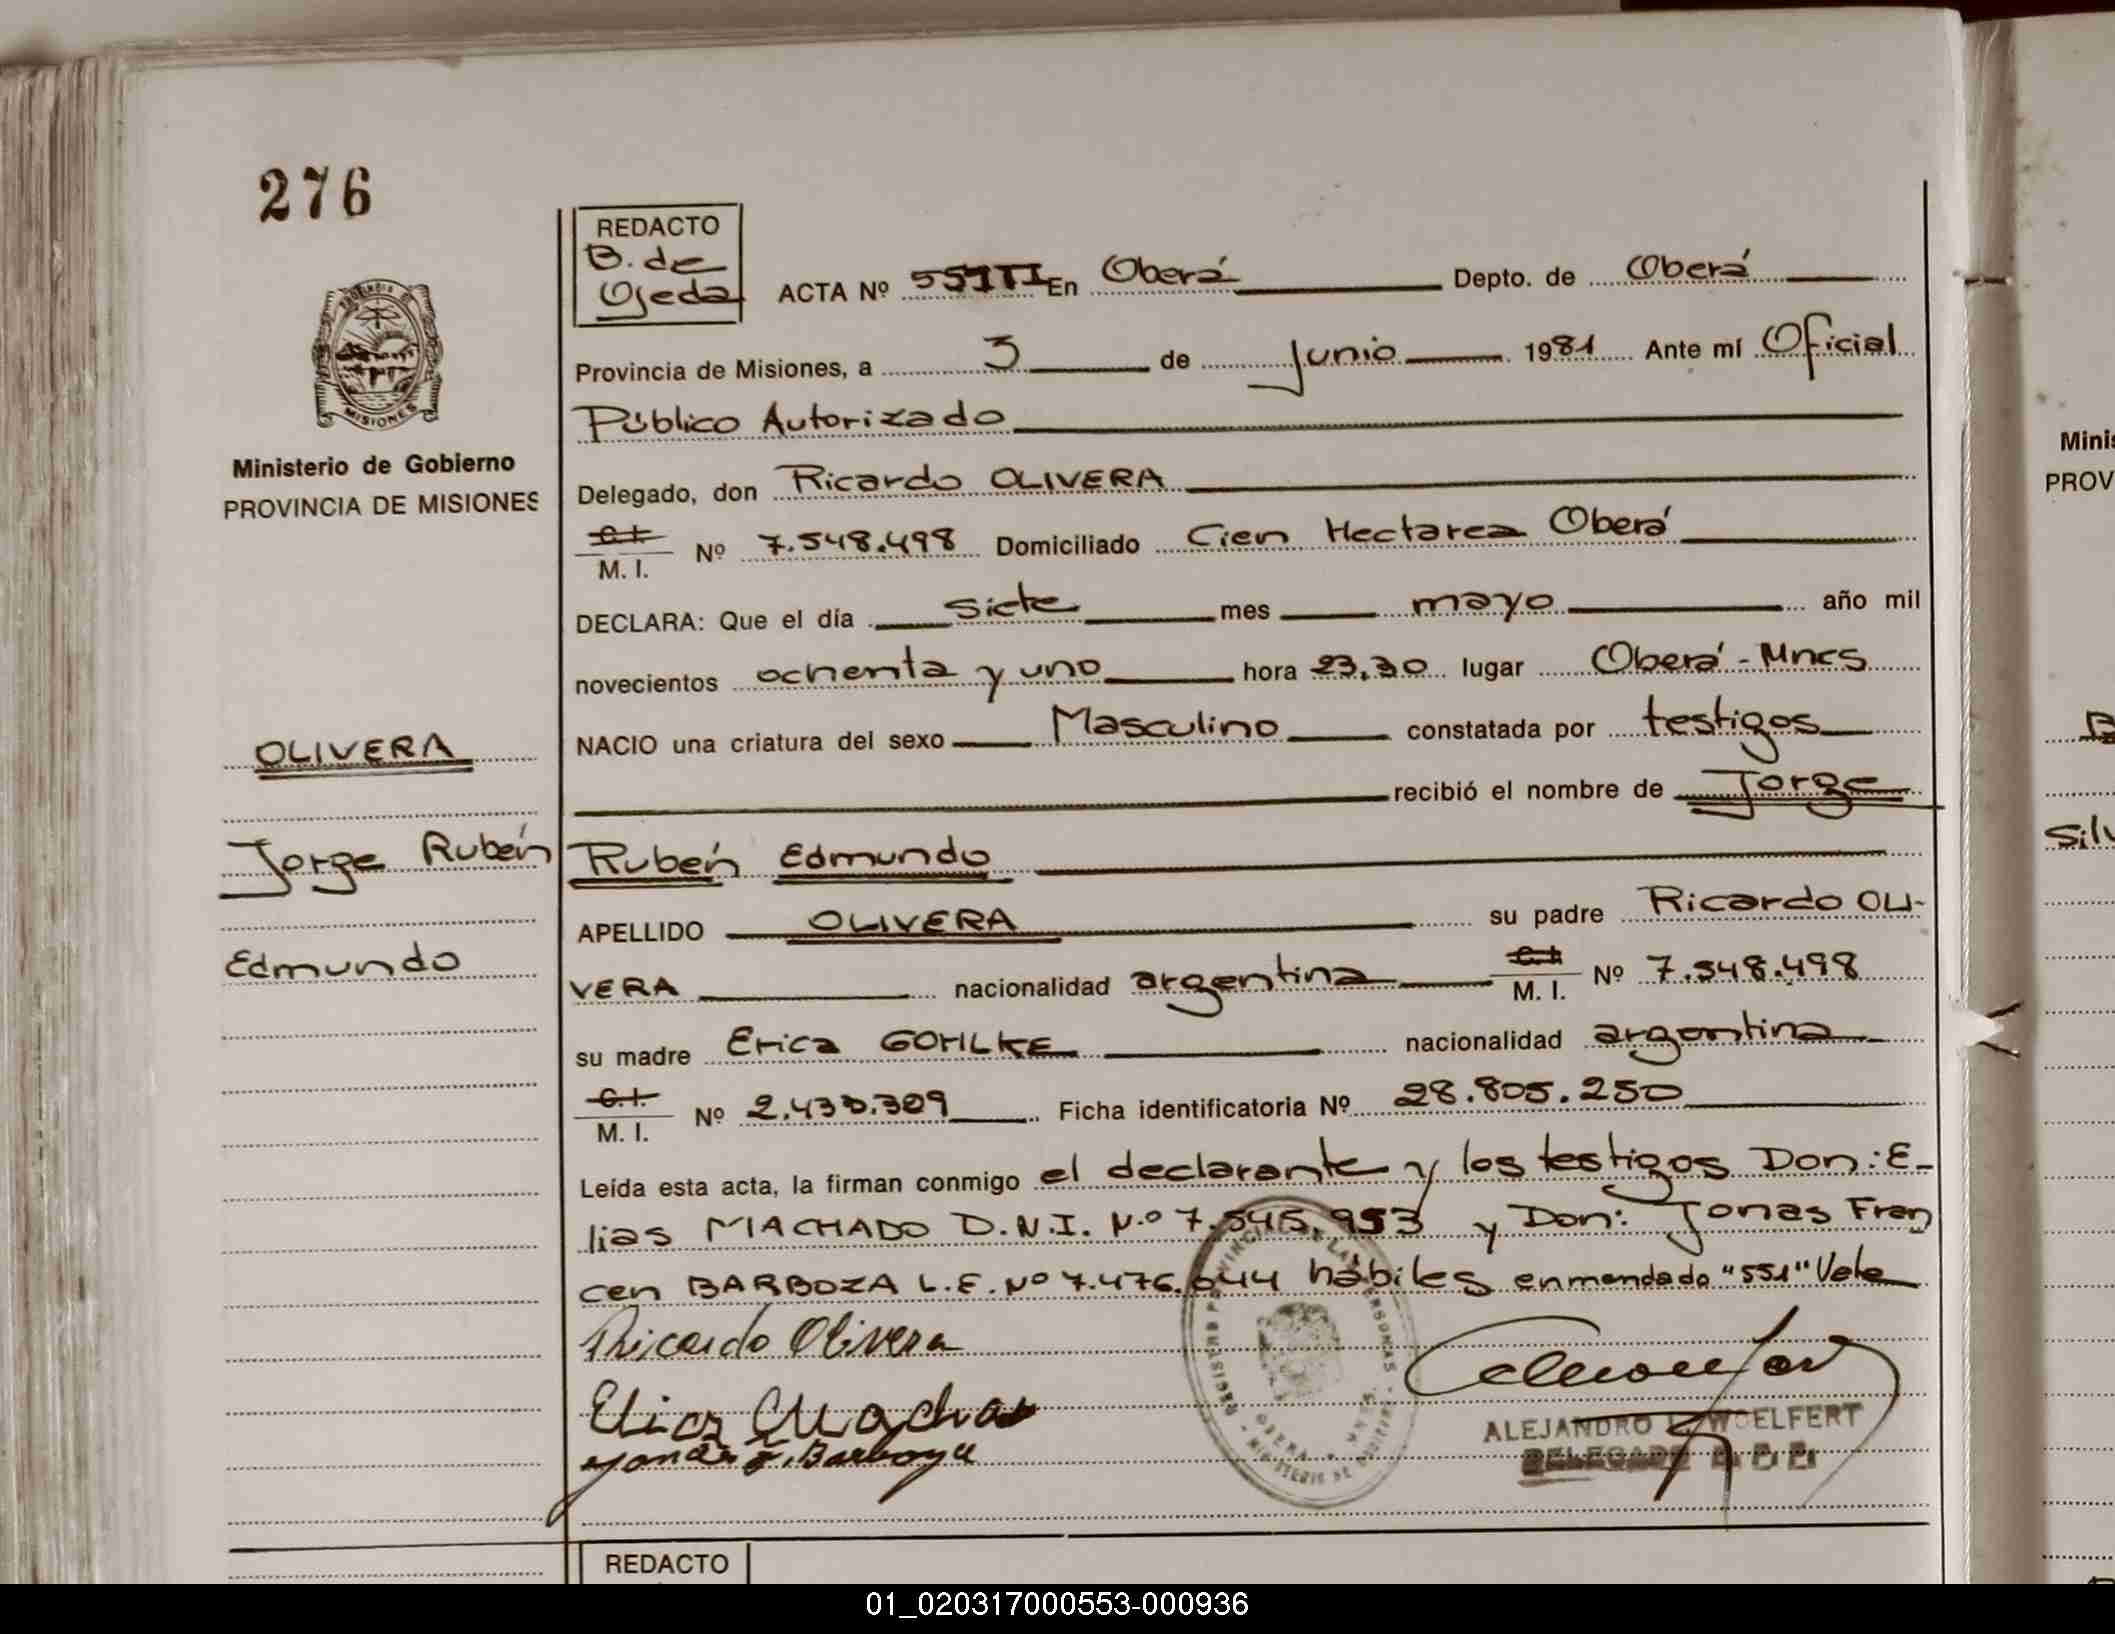 276
REDACTO
B. de
Ojeda
ACTA Nº 551TI En Oberá Depto. de Oberá
Provincia de Misiones, a 3 de Junio 1981 Ante mí Oficial
Público Autorizado
Ministerio de Gobierno
PROVINCIA DE MISIONES
Delegado, don Ricardo OLIVERA
C.I.
M. I. Nº 7.548.498 Domiciliado Cien Hectarea Oberá
DECLARA: Que el día siete mes mayo año mil
novecientos ochenta y uno hora 23,30 lugar Oberá - Mnes
NACIO una criatura del sexo Masculino constatada por testigos
recibió el nombre de Jorge
Rubén Edmundo
OLIVERA
Jorge Rubén
Edmundo
APELLIDO OLIVERA su padre Ricardo OLI-
VERA nacionalidad argentina C.I.
M. I. Nº 7.548.498
su madre Erica GOHLKE nacionalidad argentina
C.I.
M. I. Nº 2.430.309 Ficha identificatoria Nº 28.805.250
Leída esta acta, la firman conmigo el declarante y los testigos Don: E-
lias MACHADO D.N.I. N.º 7.545.953 y Don: Jonas Fran
cen BARBOZA L.E. Nº 7.476.644 hábiles enmendado "551" Vale
Ricardo Olivera
Elias Machado
Jonas F. Barboza
ALEJANDRO L. WOELFERT
DELEGADO
REDACTO
Minis
PROV
Silv
01_020317000553-000936